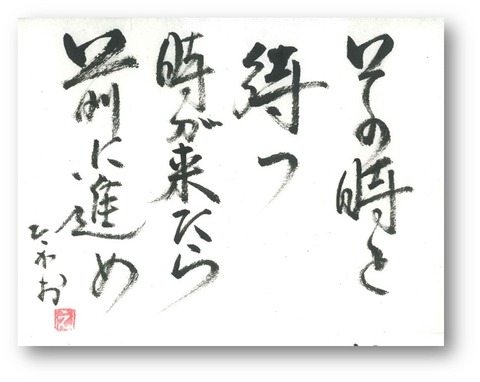 その時を
待つ
時が来たら
前に進め
え